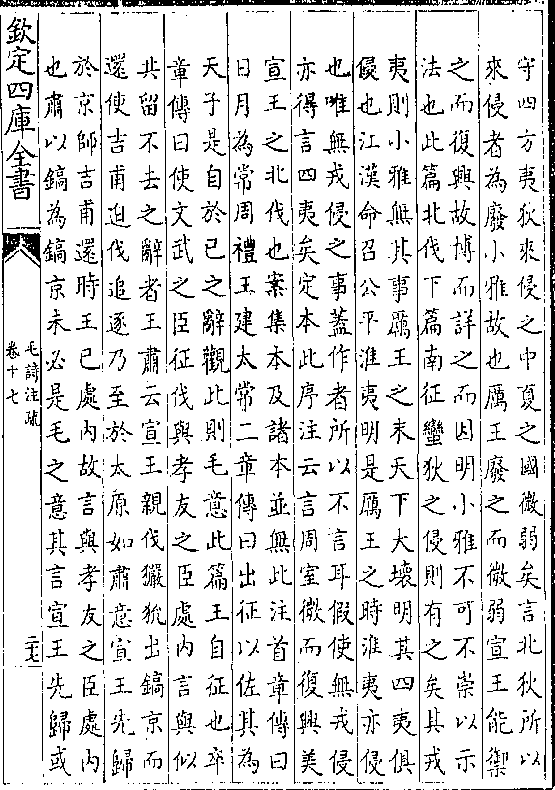 守四方夷狄來侵之中夏之國微弱矣言北狄所以
來侵者為廢小雅故也厲王廢之而微弱宣王能禦
之而復興故博而詳之而因明小雅不可不崇以示
法也此篇北伐下篇南征蠻狄之侵則有之矣其戎
夷則小雅無其事厲王之末天下大壞明其四夷俱
侵也江漢命召公平淮夷明是厲王之時淮夷亦侵
也唯無戎侵之事蓋作者所以不言耳假使無戎侵
亦得言四夷矣定本此序注云言周室微而復興美
宣王之北伐也案集本及諸本並無此注首章傳曰
日月為常周禮王建太常二章傳曰出征以佐其為
天子是自於已之辭觀此則毛意此篇王自征也卒
章傳曰使文武之臣征伐與孝友之臣處内言與似
共留不去之辭者王肅云宣王親伐玁狁出鎬京而
還使吉甫迫伐追逐乃至於太原如肅意宣王先歸
於京師吉甫還時王已處内故言與孝友之臣處内
也肅以鎬為鎬京未必是毛之意其言宣王先歸或
欽定四庫全書
毛詩注疏
卷十七